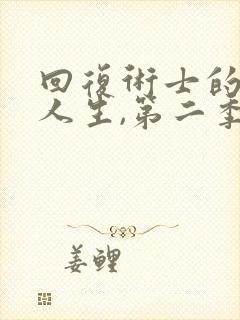 回復術士的
人生,第二季
姜鯉